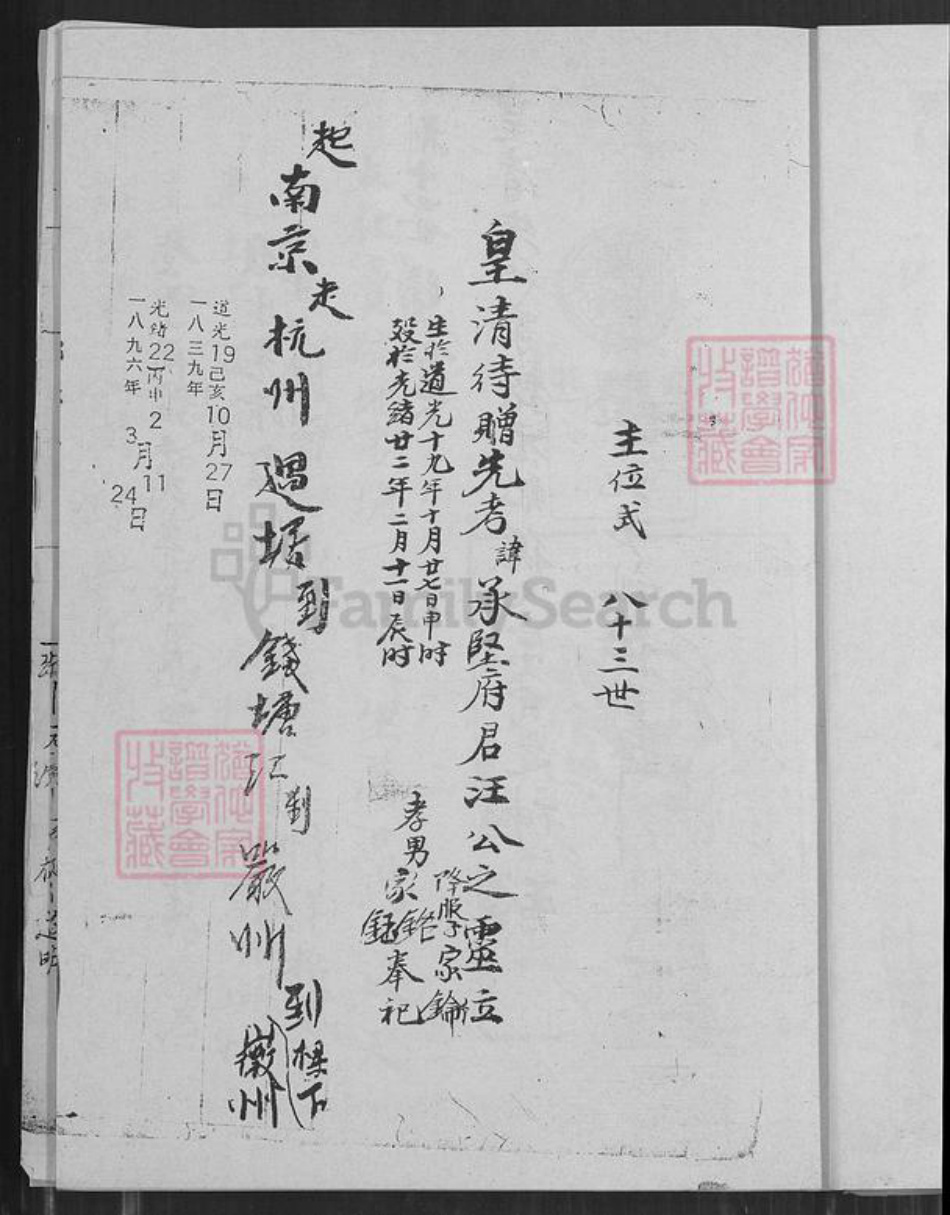 主位式 八十三世
皇清待贈先考諱承堅府君汪公之靈位
生於道光十九年十月廿七日申时
殁於光緒廿二年二月十一日辰时
降服子家鑰立
孝男家銘鈺奉祀
起南京走杭州過塘到錢塘江到嚴州到樑下徽州
道光19己亥10月27日
一八三九年
光緒22丙申2月11日
22
3 24
一八九六年
譜學會
收藏
譜學會
收藏
FamilySearch